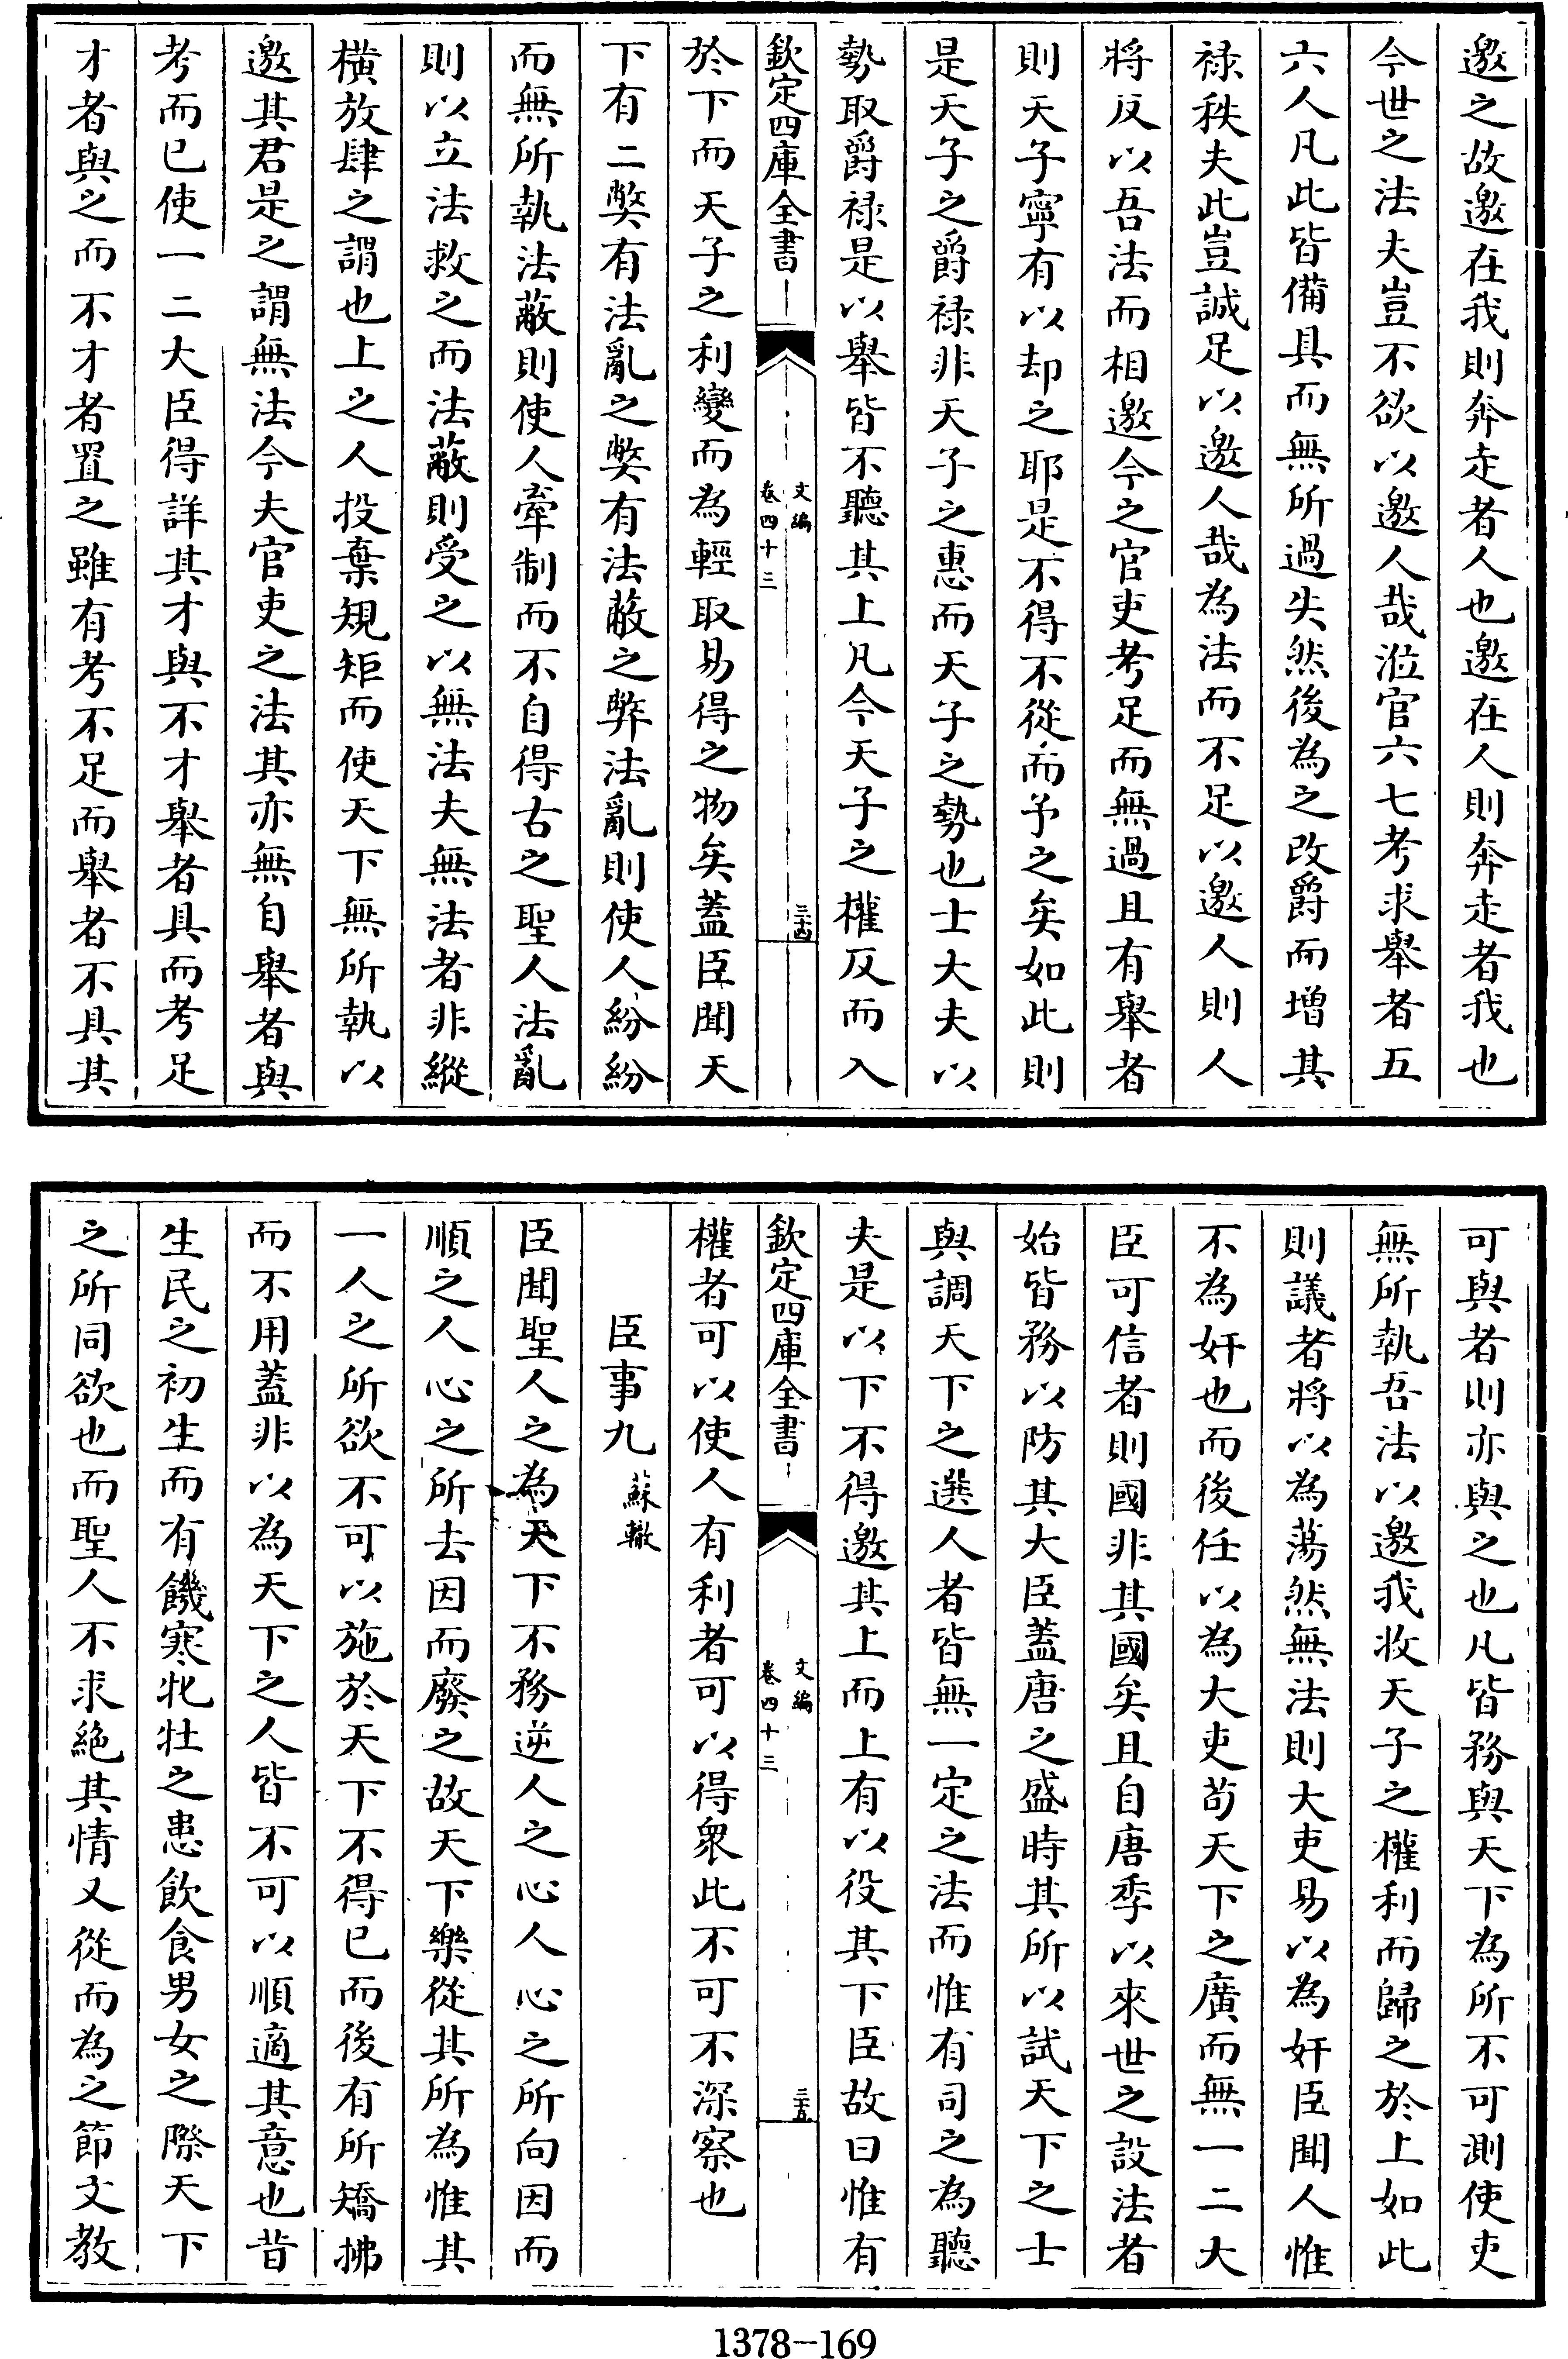 邀之故邀在我則奔走者人也邀在人則奔走者我也
今世之法夫豈不欲以邀人哉涖官六七考求舉者五
六人凡此皆備具而無所過失然後為之改爵而增其
祿秩夫此豈誠足以邀人哉為法而不足以邀人則人
將反以吾法而相邀今之官吏考足而無過且有舉者
則天子寧有以却之耶是不得不從而予之矣如此則
是天子之爵祿非天子之惠而天子之勢也士大夫以
勢取爵祿是以舉皆不聽其上凡今天子之權反而入
欽定四庫全書
文編
卷四十三
三十四
於下而天子之利變而為輕取易得之物矣蓋臣聞天
下有二獘有法亂之獘有法蔽之弊法亂則使人紛紛
而無所執法蔽則使人牽制而不自得古之聖人法亂
則以立法救之而法蔽則受之以無法夫無法者非縱
橫放肆之謂也上之人投棄規矩而使天下無所執以
邀其君是之謂無法今夫官吏之法其亦無自舉者與
考而已使一二大臣得詳其才與不才舉者具而考足
才者與之而不才者置之雖有考不足而舉者不具其
可與者則亦與之也凡皆務與天下為所不可測使吏
無所執吾法以邀我收天子之權利而歸之於上如此
則議者將以為蕩然無法則大吏易以為奸臣聞人惟
不為奸也而後任以為大吏茍天下之廣而無一二大
臣可信者則國非其國矣且自唐季以來世之設法者
始皆務以防其大臣蓋唐之盛時其所以試天下之士
與調天下之選人者皆無一定之法而惟有司之為聽
夫是以下不得邀其上而上有以役其下臣故曰惟有
欽定四庫全書
文編
卷四十三
三十五
權者可以使人有利者可以得衆此不可不深察也
臣事九　蘇轍
臣聞聖人之為天下不務逆人之心人心之所向因而
順之人心之所去因而廢之故天下樂從其所為惟其
一人之所欲不可以施於天下不得已而後有所矯拂
而不用蓋非以為天下之人皆不可以順適其意也昔
生民之初生而有饑寒牝牡之患飲食男女之際天下
之所同欲也而聖人不求絕其情又從而為之節文教
1378-169